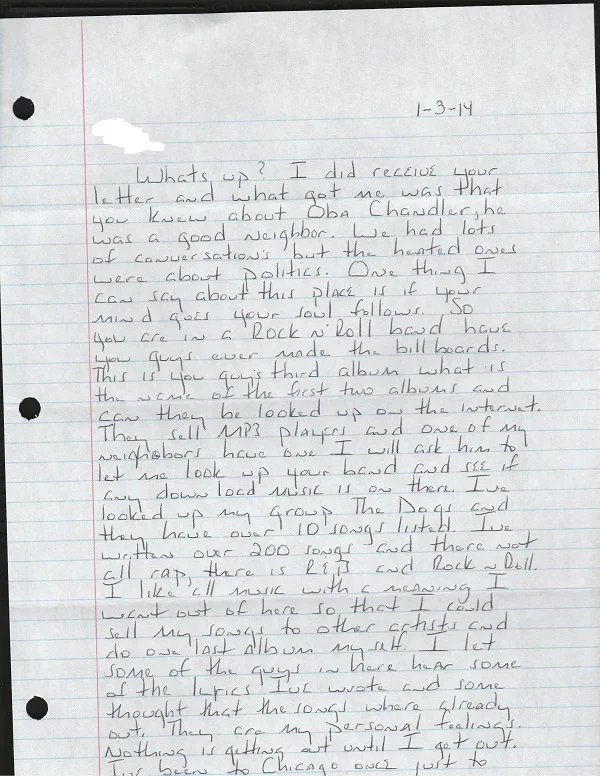 1-3-14
Whats up? I did receive your
letter and what got me was that
you knew about Oba Chandler, he
was a good neighbor. We had lots
of conversation's but the heated ones
were about politics. One thing I
can say about this place is if your
mind goes your soul follows. So
you are in a Rock n' Roll band have
you guys ever made the bill boards.
This is you guy's third album what is
the name of the first two albums and
can they be looked up on the internet.
They sell MP3 players and one of my
neighobors have one I will ask him to
let me look up your band and see if
any down load music is on there. I've
looked up my group The Dogs and
they have over 10 songs listed. I've
written over 200 songs and there not
all rap, there is R&B and Rock n Roll.
I like all music with a meaning I
want out of here so that I could
sell my songs to other artists and
do one last album my self. I let
some of the guys in here hear some
of the lyrics I've wrote and some
thought that the songs where already
out. They are my personal feelings.
Nothing is getting out until I get out.
I've been to Chicago once just to